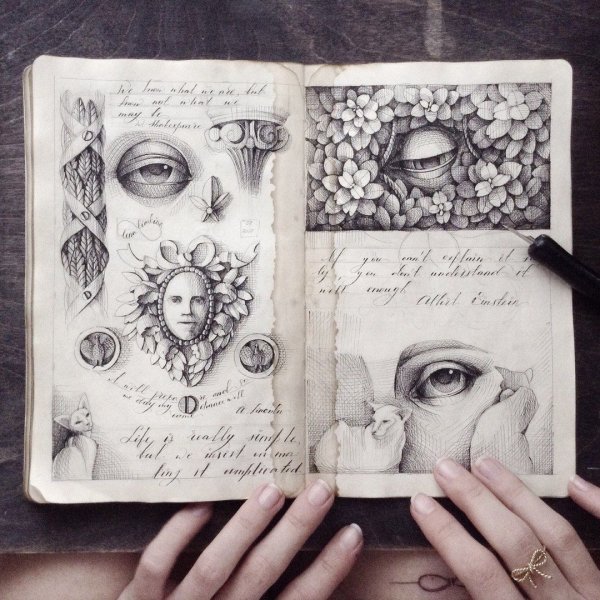 We know what we are, but
know not what we
may be
Shakespeare
D
D
D
I will prepare and
some day my chance will
come
A. Lincoln
Life is really simple,
but we insist on ma
king it complicated
If you can't explain it
ly, you don't understand it
well enough
Albert Einstein